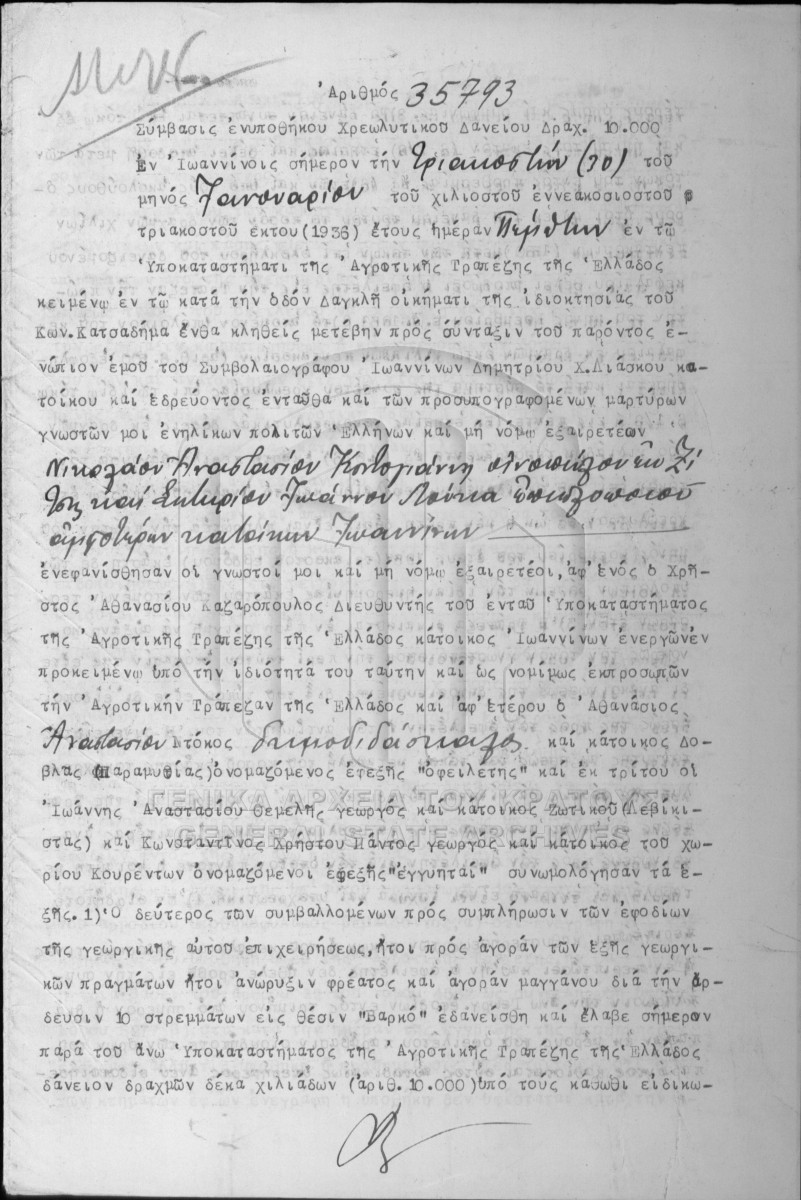 Ἀριθμός 35793
Σύμβασις ἐνυποθήκου Χρεωλυτικοῦ Δανείου Δραχ. 10.000
Ἐν Ἰωαννίνοις σήμερον τήν τριακοστήν (30) τοῦ
μηνός Ἰανουαρίου τοῦ χιλιοστοῦ ἐννεακοσιοστοῦ
τριακοστοῦ ἕκτου (1936) ἔτους ἡμέραν Πέμπτην ἐν τῷ
Ὑποκαταστήματι τῆς Ἀγροτικῆς Τραπέζης τῆς Ἑλλάδος
κειμένῳ ἐν τῷ κατά τήν ὁδόν Δαγκλῆ οἰκήματι τῆς ἰδιοκτησίας τοῦ
Κων. Κατσαδήμα ἔνθα κληθείς μετέβην πρός σύνταξιν τοῦ παρόντος ἐ-
νώπιον ἐμοῦ τοῦ Συμβολαιογράφου Ἰωαννίνων Δημητρίου Χ. Λιάσκου κα-
τοίκου καί ἑδρεύοντος ἐνταῦθα καί τῶν προσυπογραφομένων μαρτύρων
γνωστῶν μοι ἐνηλίκων πολιτῶν Ἑλλήνων καί μή νόμῳ ἐξαιρετέων
Νικολάου Ἀναστασίου οἰνοπώλου ἐκ Ζί
τσης καί Σωτηρίου Ἰωάννου Λούκα
ἀμφοτέρων κατοίκων Ἰωαννίνων
ἐνεφανίσθησαν οἱ γνωστοί μοι καί μή νόμῳ ἐξαιρετέοι, ἀφ' ἑνός ὁ Χρῆ-
στος Ἀθανασίου Καζαρόπουλος Διευθυντής τοῦ ἐνταῦ Ὑποκαταστήματος
τῆς Ἀγροτικῆς Τραπέζης τῆς Ἑλλάδος κάτοικος Ἰωαννίνων ἐνεργῶν ἐν
προκειμένῳ ὑπό τήν ἰδιότητά του ταύτην καί ὡς νομίμως ἐκπροσωπῶν
τήν Ἀγροτικήν Τράπεζαν τῆς Ἑλλάδος καί ἀφ' ἑτέρου ὁ Ἀθανάσιος
Ἀναστασίου Ντόκος δημοδιδάσκαλος καί κάτοικος Δο-
βλας (Παραμυθίας) ὀνομαζόμενος ἐφεξῆς "ὀφειλέτης" καί ἐκ τρίτου οἱ
ΓΕΝΙΚΑ ΑΡΧΕΙΑ ΤΟΥ ΚΡΑΤΟΥΣ
Ἰωάννης Ἀναστασίου Θεμελῆς γεωργός καί κάτοικος Ζωτικοῦ (Λεβίκι-
GENERAL STATE ARCHIVES
στας) καί Κωνσταντῖνος Χρήστου Πάντος γεωργός καί κάτοικος τοῦ χω-
ρίου Κουρέντων ὀνομαζόμενοι ἐφεξῆς "ἐγγυηταί" συνωμολόγησαν τά ἑ-
ξῆς. 1) Ὁ δεύτερος τῶν συμβαλλομένων πρός συμπλήρωσιν τῶν ἐφοδίων
τῆς γεωργικῆς αὐτοῦ ἐπιχειρήσεως, ἤτοι πρός ἀγοράν τῶν ἑξῆς γεωργι-
κῶν πραγμάτων ἤτοι ἀνώρυξιν φρέατος καί ἀγοράν μαγγάνου διά τήν ἄρ-
δευσιν 10 στρεμμάτων εἰς θέσιν "Βαρκό" ἐδανείσθη καί ἔλαβε σήμερον
παρά τοῦ ἄνω Ὑποκαταστήματος τῆς Ἀγροτικῆς Τραπέζης τῆς Ἑλλάδος
δάνειον δραχμῶν δέκα χιλιάδων (ἀριθ. 10.000) ὑπό τούς κάτωθι εἰδικω-